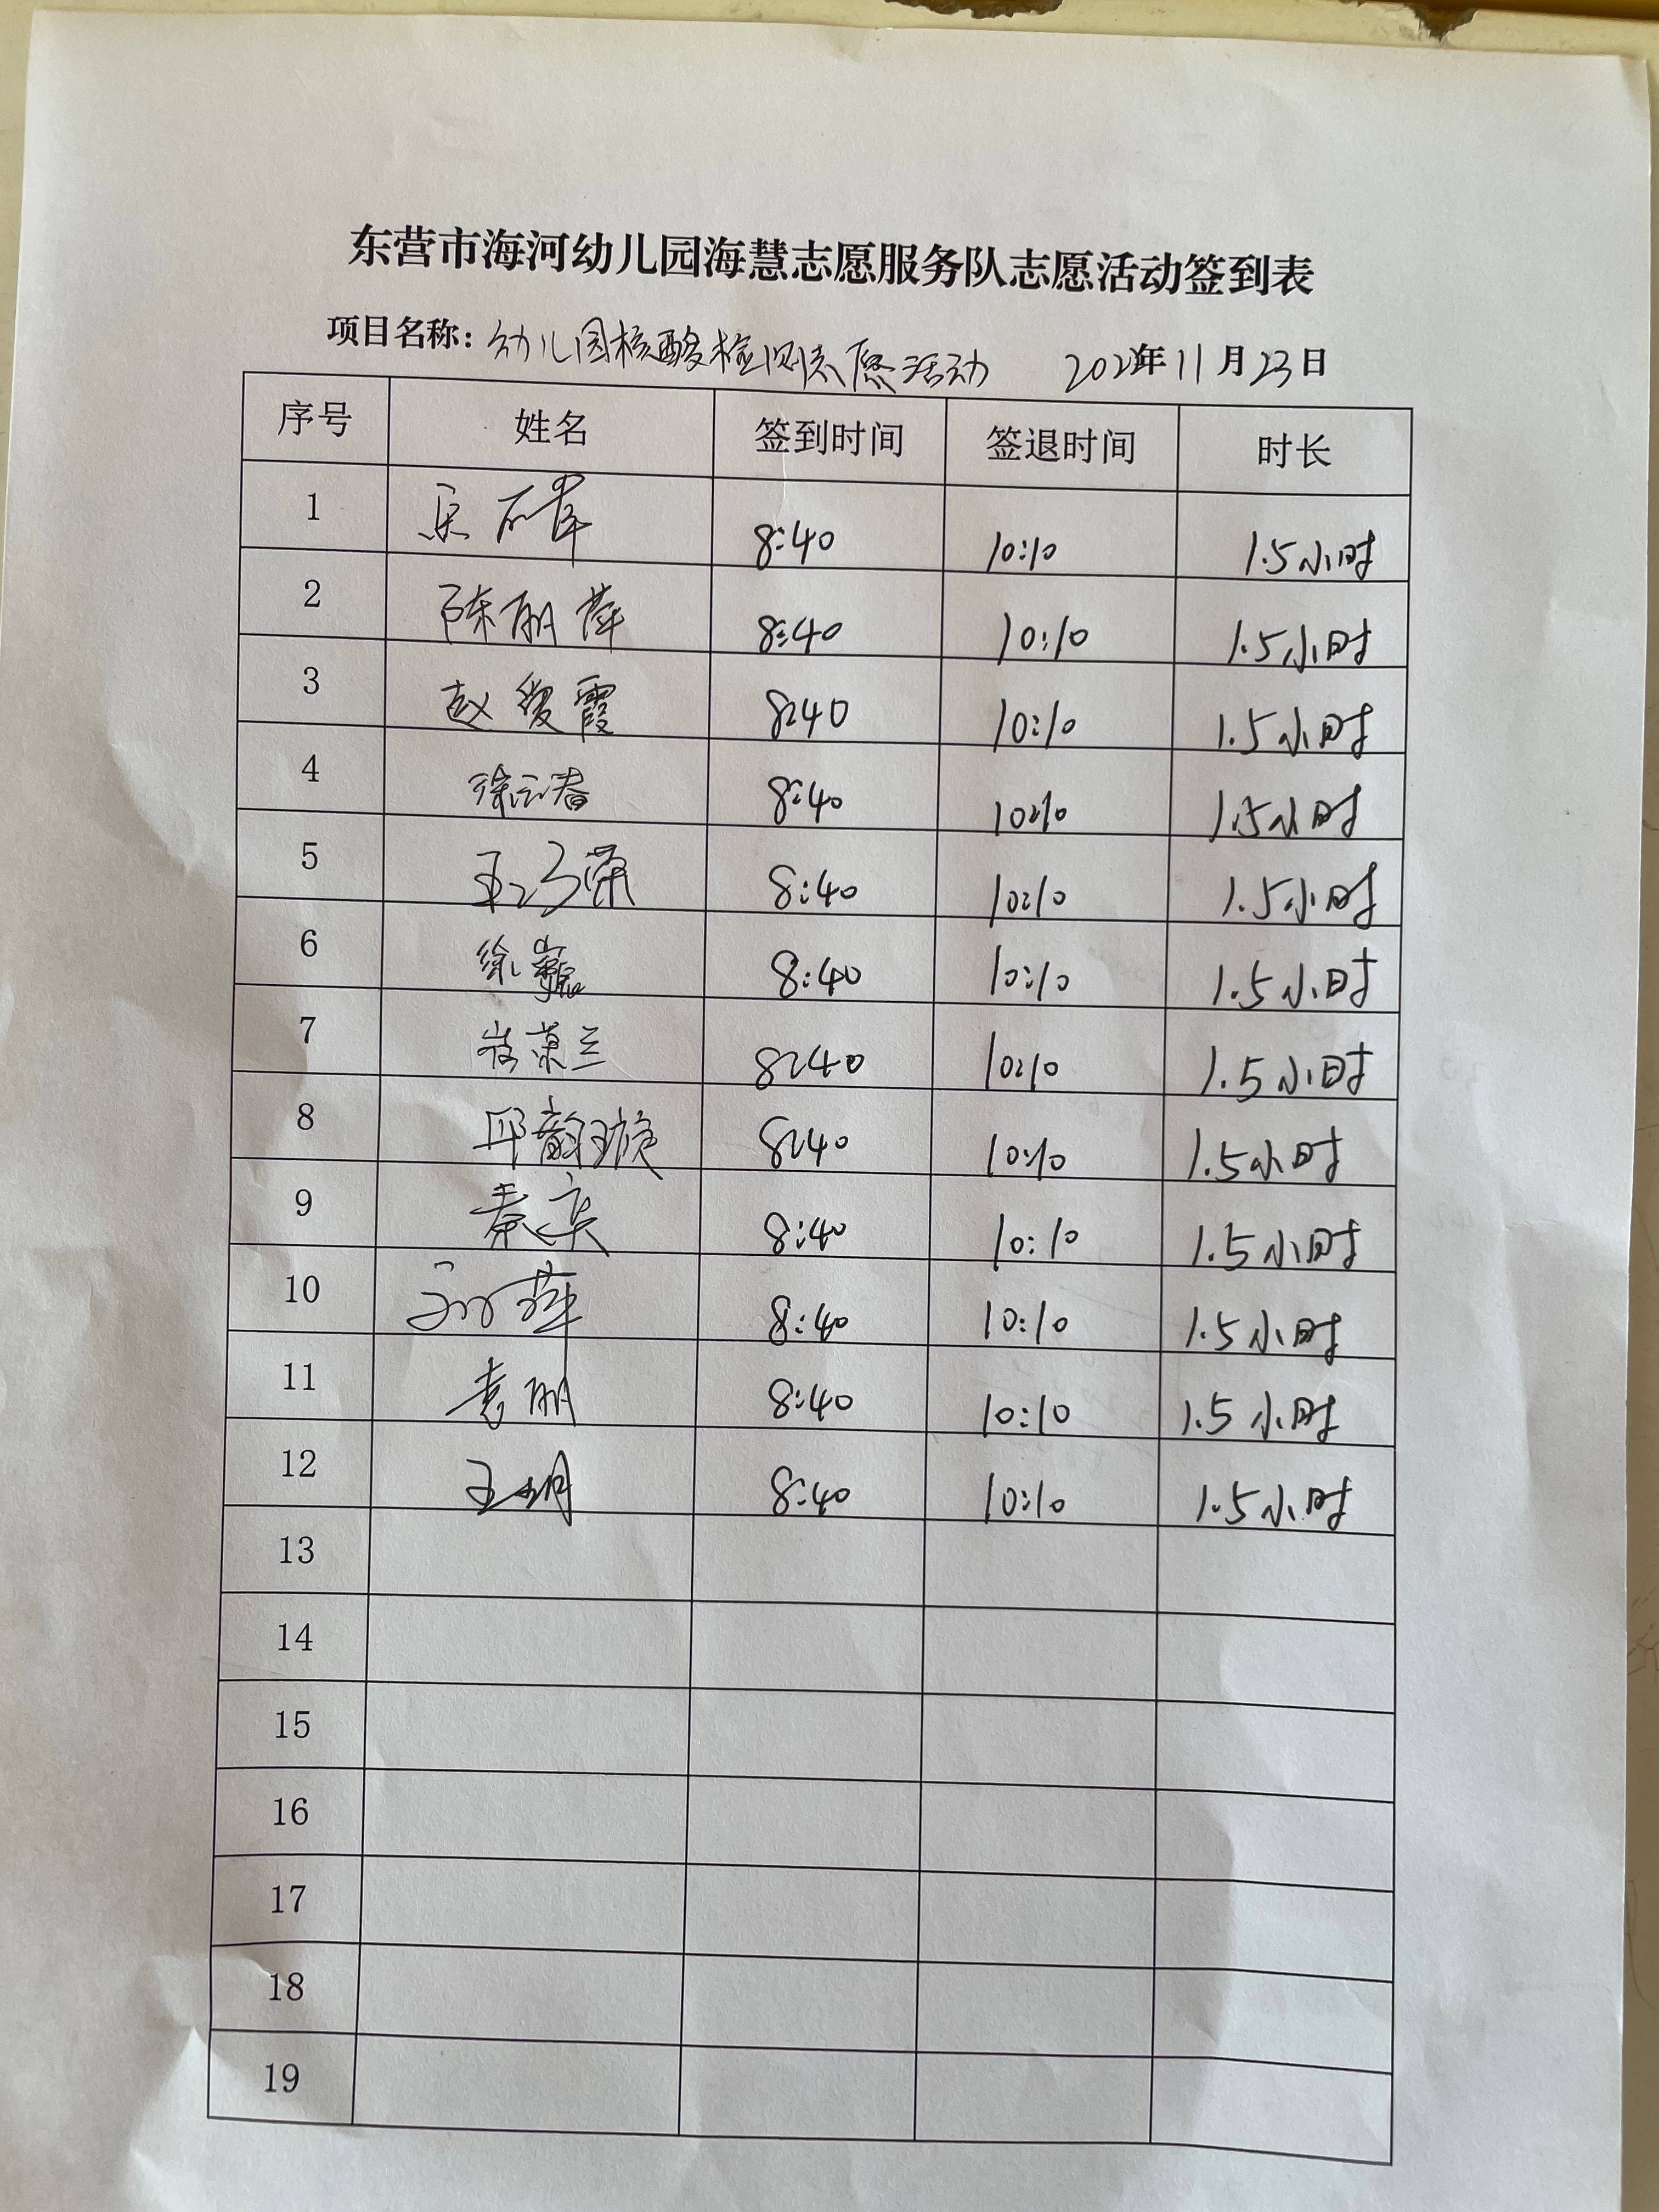 东营市海河幼儿园海慧志愿服务队志愿活动签到表
项目名称：幼儿园核酸检测志愿活动 202年11月23日
序号 姓名 签到时间 签退时间 时长
1 8:40 10:10 1.5小时
2 陈丽萍 8:40 10:10 1.5小时
3 赵爱霞 8:40 10:10 1.5小时
4 徐云春 8:40 10:10 1.5小时
5 8:40 10:10 1.5小时
6 徐巍 8:40 10:10 1.5小时
7 崔荣兰 8:40 10:10 1.5小时
8 邱韵璇 8:40 10:10 1.5小时
9 8:40 10:10 1.5小时
10 8:40 10:10 1.5小时
11 袁丽 8:40 10:10 1.5小时
12 王玥 8:40 10:10 1.5小时
13
14
15
16
17
18
19